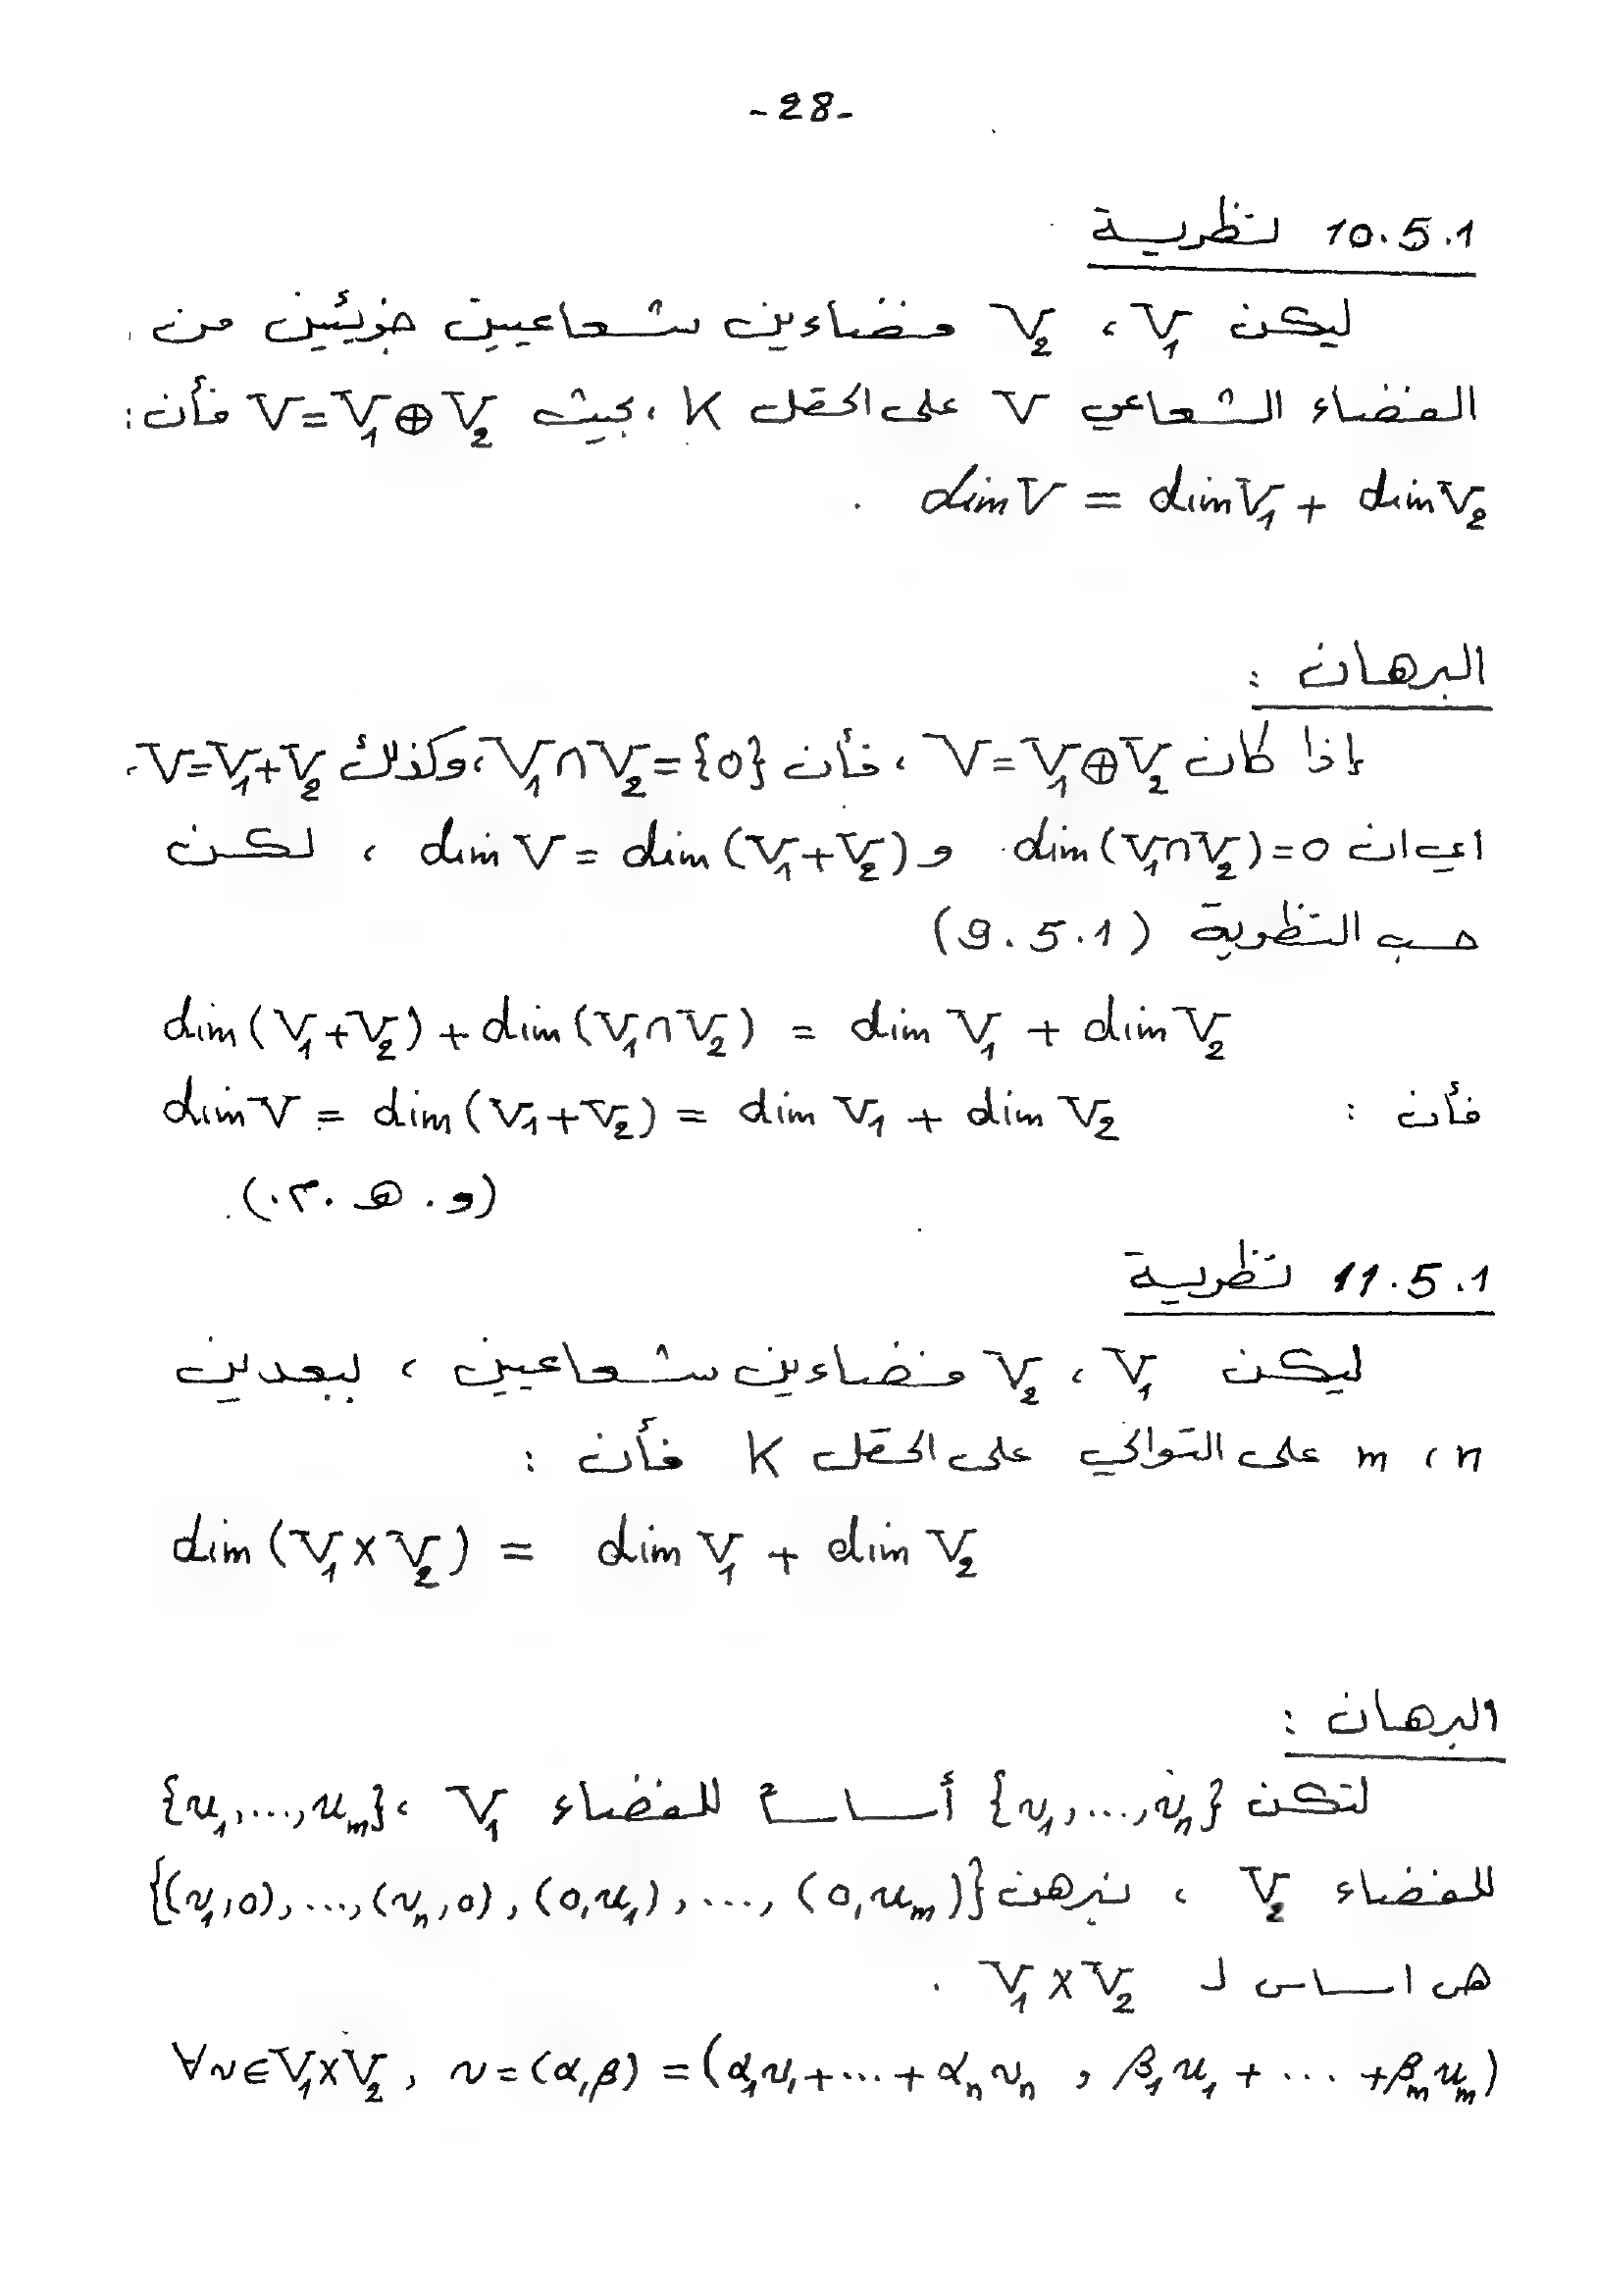 -28-
10.5.1 نظرية
ليكن V₁ ، V₂ فضاءين شعاعيين جزئيين من
الفضاء الشعاعي V على الحقل K ، بحيث V=V₁⊕V₂ فأن :
dim V = dim V₁ + dim V₂ .
البرهان :
إذا كان V=V₁⊕V₂ ، فأن V₁∩V₂={0} ، وكذلك V=V₁+V₂ .
اي ان dim(V₁∩V₂)=0 و dim V = dim (V₁+V₂) ، لكن
حسب النظرية (9.5.1)
dim(V₁+V₂) + dim(V₁∩V₂) = dim V₁ + dim V₂
فأن : dim V = dim(V₁+V₂) = dim V₁ + dim V₂
(و . هـ . م .)
11.5.1 نظرية
ليكن V₁ ، V₂ فضاءين شعاعيين ، ببعدين
n ، m على التوالي على الحقل K فأن :
dim (V₁×V₂) = dim V₁ + dim V₂
البرهان :
لتكن {v₁,...,vₙ} أساساً للفضاء V₁ ، {u₁,...,uₘ}
للفضاء V₂ ، نبرهن {(v₁,0),...,(vₙ,0),(0,u₁),...,(0,uₘ)}
هي اساس لـ V₁×V₂ .
∀v∈V₁×V₂, v=(α,β)=(α₁v₁+...+αₙvₙ , β₁u₁+...+βₘuₘ)